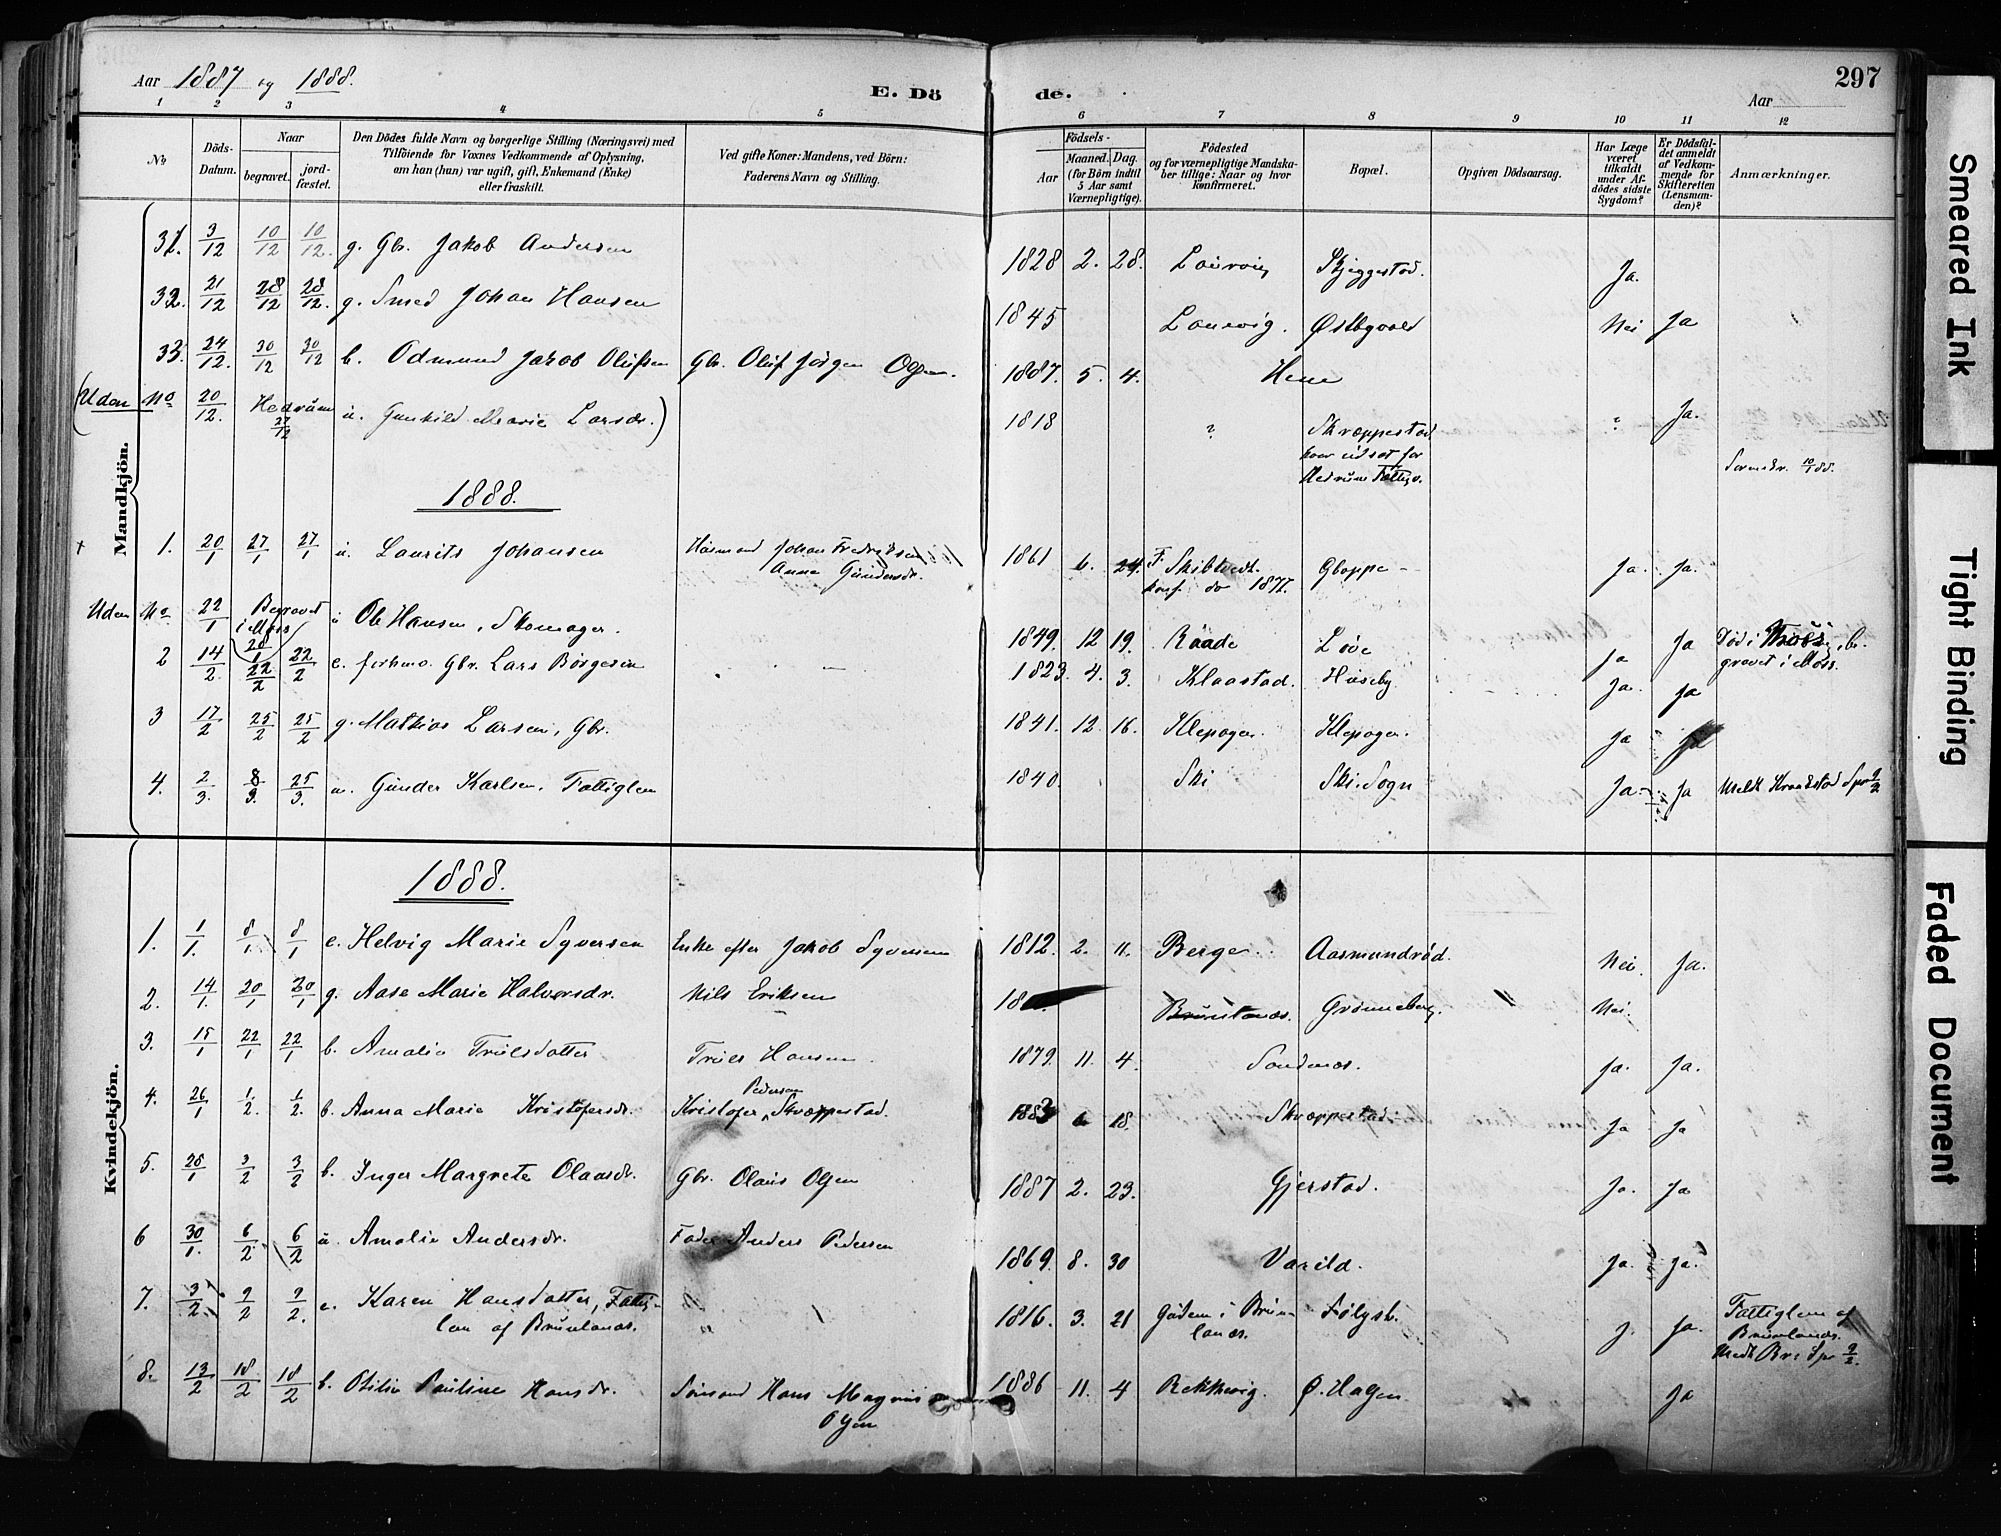 Aar 1887 og 1888.
E. Dö de.
Aar
297
1 2 3 4 5 6 7 8 9 10 11 12
No
Döds-Datum.
Naar
begravet.
jord-fæstet.
Den Dödes fulde Navn og borgerlige Stilling (Næringsvei) med
Tilföiende for Voxnes Vedkommende af Oplysning,
om han (hun) var ugift, gift, Enkemand (Enke)
eller fraskilt.
Ved gifte Koner: Mandens, ved Börn:
Faderens Navn og Stilling.
Födsels-
Aar
Maaned. Dag.
(for Börn indtil
5 Aar samt
Værnepligtige).
Födested
og for værnepligtige Mandska-
ber tillige: Naar og hvor
konfirmeret.
Bopæl.
Opgiven Dödsaarsag.
Har Læge
været
tilkaldt
under Af-
dödes sidste
Sygdom?
Er Dödsfal-
det anmeldt
af Vedkom-
mende for
Skifteretten
(Lensman-
den)?
Anmærkninger.
Mandkjön.
31. 3/12 10/12 10/12 g. Gbr. Jakob Andersen 1828 2. 28. Laurvig Skjeggestad. Ja.
32. 21/12 28/12 28/12. g. Smed Johan Hansen 1845 Laurvig. Nei Ja
33. 24/12. 30/12 30/12 b. Odmund Jakob Olufsen Gbr. Oluf Jörgen Olsen. 1887. 5. 4. Hem
(Uden No 20/12. Hedrum 27/12 u. Gunhild Marie Larsdr.) 1818 ? Skræppestad ? Ja.
hvor udsat for
Hedrum Fattigv.
Sorenskr. 10/1 88.
1888.
+ 1. 20/1 27/1 27/1 u. Laurits Johansen Husmand Johan Fredriksen
Anna Gundersdr. 1861 6. 24. F. Skibtvedt. Gloppe - Ja. Ja.
konf. do 1877.
Uden No 22/1 Begravet i Moss 28/1 u Ole Hansen, Skomager. 1849. 12 19. Raade Løve Ja Ja Död i Moss, be-
gravet i Moss.
2 14/2. 22/2 22/2 e. forhv. Gbr. Lars Børgesen 1823. 4. 3. Klaastad. Huseby Ja. Ja
3 17/2 25/2 25/2 g. Mathias Larsen, Gbr. 1841. 12. 16. Klepager. Klepager. Ja Ja
4. 2/3. 8/3. 25/3. u. Gunder Karlsen, Fattiglem 1840. Ski Ski Sogn Ja. Ja Meldt Kraakstad Spr 9/2
Kvindekjön.
1888.
1. 1/1. 8/1. 8/1 e. Helvig Marie Syversen Enke efter Jakob Syversen 1812. 2. 11. Berge. Aasmundrød. Nei. Ja.
2. 14/1. 20/1 20/1 g. Aase Marie Halvorsdr. Nils Eriksen 18 Brunlanæs. Grønneberg. Nei.
3. 15/1 22/1 22/1 b. Amalie Trulsdatter Truls Hansen 1879. 11. 4. Sandenæs. Ja. Ja.
4. 26/1 1/2. 1/2. b. Anna Marie Kristofersdr. Kristofer Pedersen Skræppestad. 1883 6 18. Skræppestad. Ja Ja
5. 28/1 3/2 3/2 b. Inger Margrete Olausdr. Gbr. Olaus Olsen 1887 2. 23. Gjerstad. Ja. Ja
6 30/1. 6/2 6/2 u. Amalie Andersdr. Fader Anders Pedersen 1869. 8. 30 Varild. Ja. Ja.
7. 3/2 9/2 9/2. e. Karen Hansdatter, Fattig-
lem af Brunlanæs. 1816. 3. 21 i Brun-
lanæs. J. Ja. Fattiglem af
Brunlanæs.
Medt Br. Spr 9/2.
8. 13/2 18/2 18/2 b. Otilie Pauline Hansdr. Sömand Hans Magnus
Olsen 1886 11. 4 Rekkevig. Ø. Hagen Ja
Smeared Ink
Tight Binding
Faded Document